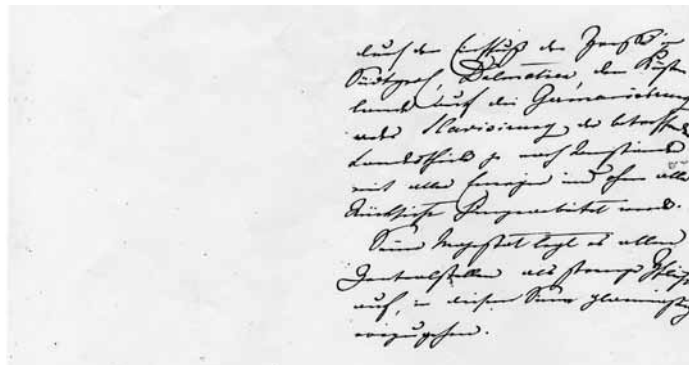 durch den Einfluß der Preße in
Südtyrol, Dalmatien, dem Küsten
lande auf die Germanisirung
oder Slavisirung der betreffende
Landestheile je nach Umständen
mit aller Energie und ohne alle
Rücksicht hingearbeitet werde.
Seine Majestät legt es allen
Zentralstellen als strenge Pflich
auf, in diesem Sinne planmäßig
vorzugehen.